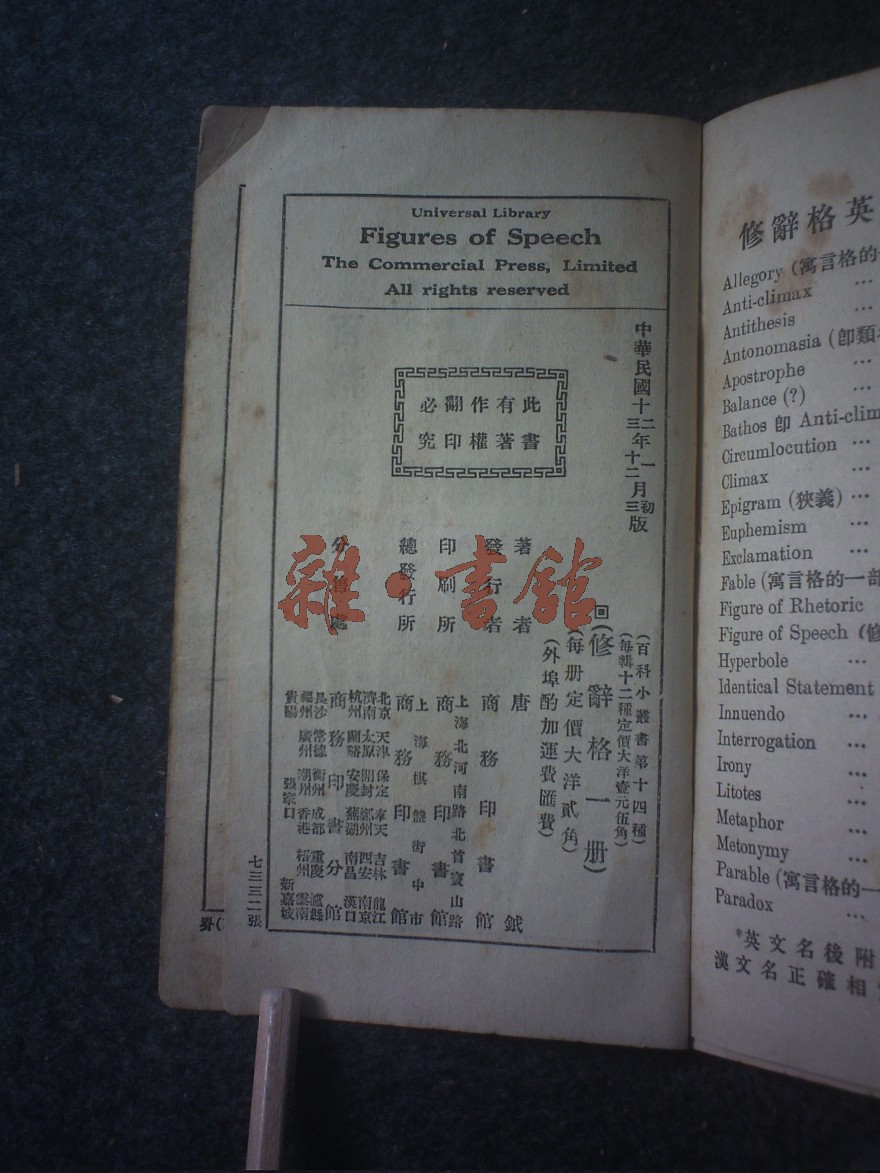 Universal Library
Figures of Speech
The Commercial Press, Limited
All rights reserved
中華民國十二年一月初版
三年十二月三版
此書有著作權翻印必究
(百科小叢書第十四種)
(每輯十二種定價大洋壹元伍角)
回(修辭格一册)
(每册定價大洋貳角)
(外埠酌加運費匯費)
著者 唐鉞
發行者 商務印書館
印刷所 上海北河南路北首寶山路 商務印書館
總發行所 上海棋盤街中市 商務印書館
分售處 商務印書分館
北京 天津 保定 奉天 吉林 龍江
濟南 太原 開封 鄭州 西安 南京
杭州 蘭谿 安慶 蕪湖 南昌 漢口
長沙 常德 衡州 成都 重慶 瀘縣
福州 廣州 潮州 香港 梧州 雲南
貴陽 張家口 新嘉坡
七三三二張
雜·書館
修辭格英
Allegory (寓言格的一
Anti-climax ...
Antithesis ...
Antonomasia (卽類
Apostrophe ...
Balance (?) ...
Bathos 卽 Anti-clim
Circumlocution ...
Climax ...
Epigram (狹義) ...
Euphemism ...
Exclamation ...
Fable (寓言格的一部
Figure of Rhetoric
Figure of Speech (修
Hyperbole ...
Identical Statement
Innuendo ...
Interrogation ...
Irony ...
Litotes ...
Metaphor ...
Metonymy ...
Parable (寓言格的一
Paradox ...
*英文名後附
漢文名正確相